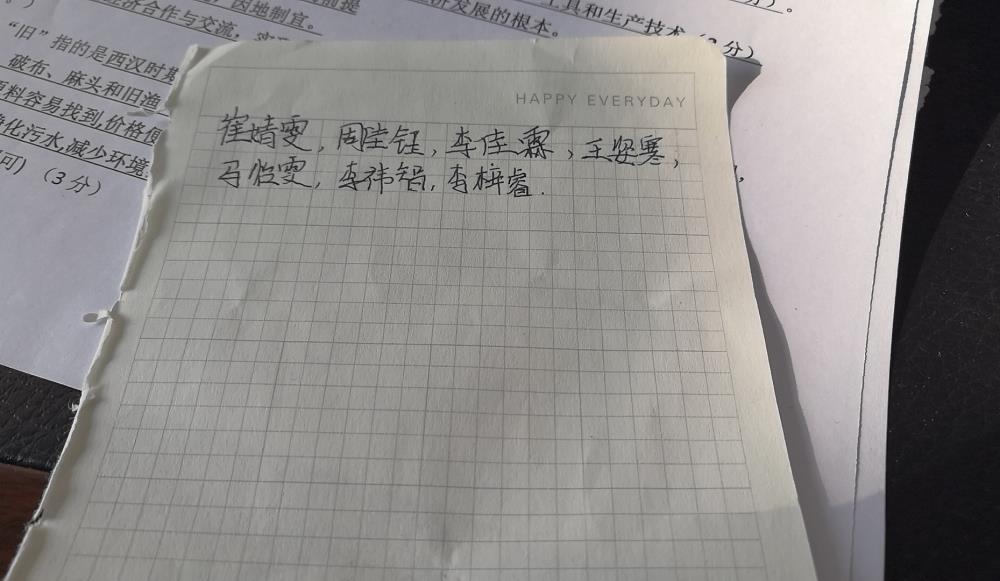 ，因地制宜。
经济合作与交流，
济发展的根本。
工具和生产技术（2分）。
“旧”指的是西汉时期
破布、麻头和旧渔
原料容易找到,价格便
净化污水,减少环境
可) （3分）
HAPPY EVERYDAY
崔婧雯，周陆钰，李佳霖，王姿寒，
马怡雯，李祎锠，李梓睿.